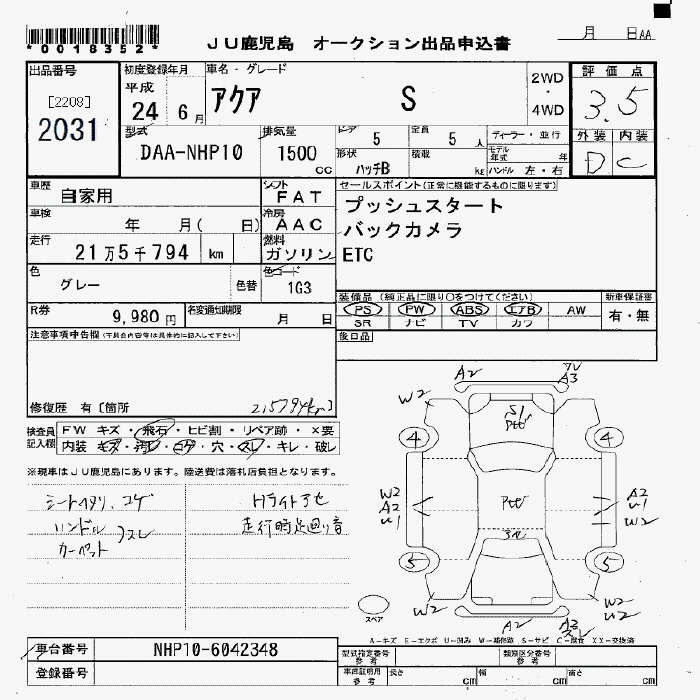 *0018352*
JU鹿児島 オークション出品申込書
月 日AA
出品番号
[2208]
2031
初度登録年月
平成
24 6月
車名・グレード
アクア S
2WD
・
4WD
評価点
3.5
外装 内装
D C
型式
DAA-NHP10
排気量
1500
CC
ドア 5
定員 5人
ディーラー・並行
形状
ハッチB
積載 kg
モデル年式 年
ハンドル 左・右
車歴
自家用
シフト
FAT
セールスポイント(正常に機能するものに限ります)
プッシュスタート
バックカメラ
ETC
車検
年 月( 日)
冷房
AAC
走行
21万5千794 km
燃料
ガソリン
色
グレー
色替
色コード
1G3
装備品 (純正品に限り○をつけてください)
新車保証書
PS PW ABS エアB AW
有・無
SR ナビ TV カワ
R券
9,980円
名変通知期限
月 日
後日品
注意事項申告欄(不具合内容等は具体的に記入して下さい)
修復歴 有〔箇所
215794km〕
検査員
記入欄
FW キズ・飛石・ヒビ割・リペア跡・×要
内装 キズ・汚レ・コゲ・穴・スレ・キレ・破レ
※現車はJU鹿児島にあります。陸送費は落札店負担となります。
シートヘタリ、コゲ
ハンドル スレ
カーペット
Hライトアセ
走行時足廻り音
A2
A3
W2
S1
4 4
W2
A2
U1
A2
U1
W2
5 5
W2
W2
U2
A2
A2
スレ
スペア
A-キズ E-エクボ U-凹み W-補修跡 S-サビ C-腐食 XX-交換済
車台番号
NHP10-6042348
登録番号
型式指定番号
参考
類別区分番号
参考
車庫証明用
参考
長さ cm 幅 cm 高さ cm